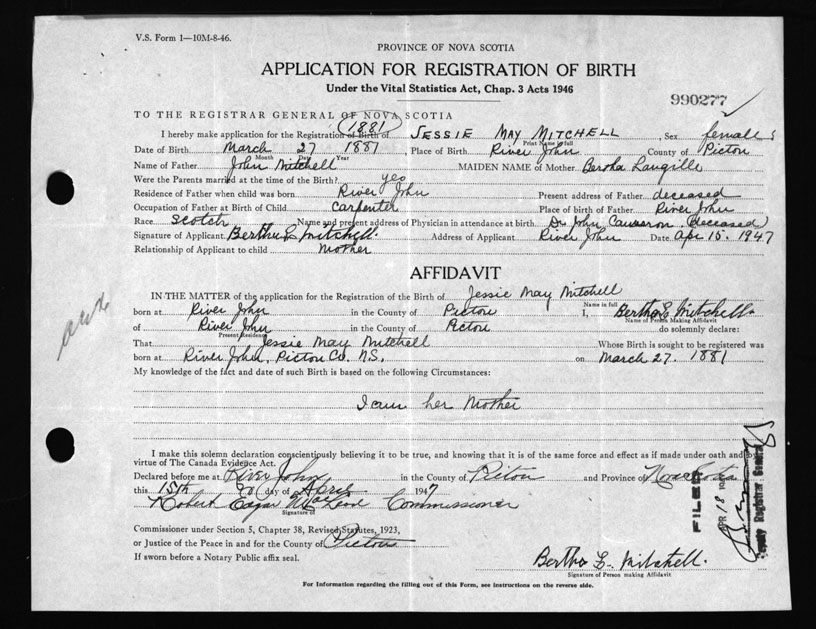 V.S. Form 1—10M-8-46.
PROVINCE OF NOVA SCOTIA
APPLICATION FOR REGISTRATION OF BIRTH
Under the Vital Statistics Act, Chap. 3 Acts 1946
990277
TO THE REGISTRAR GENERAL OF NOVA SCOTIA
1881
I hereby make application for the Registration of Birth of JESSIE MAY MITCHELL, Sex female
Print Name in full
Date of Birth March 27 1881 Place of Birth River John County of Pictou
Month Day Year
Name of Father John Mitchell MAIDEN NAME of Mother Bertha Langille
Were the Parents married at the time of the Birth? yes
Residence of Father when child was born River John Present address of Father deceased
Occupation of Father at Birth of Child Carpenter Place of birth of Father River John
Race Scotch Name and present address of Physician in attendance at birth Dr John Cameron. deceased
Signature of Applicant Bertha L Mitchell. Address of Applicant River John Date Apr 15. 1947
Relationship of Applicant to child Mother
AFFIDAVIT
IN THE MATTER of the application for the Registration of the Birth of Jessie May Mitchell
Name in full
born at River John in the County of Pictou I, Bertha L Mitchell
Name of Person Making Affidavit
of River John in the County of Pictou do solemnly declare:
Present Residence
That Jessie May Mitchell Whose Birth is sought to be registered was
born at River John, Pictou Co. N.S. on March 27. 1881
My knowledge of the fact and date of such Birth is based on the following Circumstances:
I am her Mother
I make this solemn declaration conscientiously believing it to be true, and knowing that it is of the same force and effect as if made under oath and by
virtue of The Canada Evidence Act.
Declared before me at River John in the County of Pictou and Province of Nova Scotia
this 15th day of April 1947
Robert Edgar Commissioner
Signature of
Commissioner under Section 5, Chapter 38, Revised Statutes, 1923,
or Justice of the Peace in and for the County of Pictou
If sworn before a Notary Public affix seal.
Bertha L. Mitchell.
Signature of Person making Affidavit
For Information regarding the filling out of this Form, see instructions on the reverse side.
FILED
APR 18 1947
Deputy Registrar General